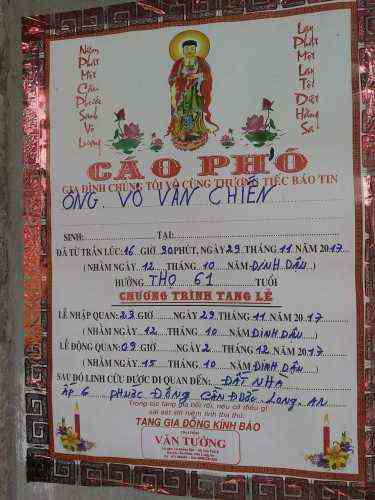 Niệm
Phật
Một
Câu
Phước
Sanh
Vô
Lượng
Lạy
Phật
Một
Lạy
Tội
Diệt
Hằng
Sa
CÁO PHÓ
GIA ĐÌNH CHÚNG TÔI VÔ CÙNG THƯƠNG TIẾC BÁO TIN
ÔNG. VÕ VĂN CHIẾN
SINH: TẠI:
ĐÃ TỪ TRẦN LÚC: 16 GIỜ 30 PHÚT, NGÀY 29. THÁNG 11. NĂM 2017
( NHẰM NGÀY 12 THÁNG 10 NĂM ĐINH DẬU )
HƯỞNG THỌ 61 TUỔI
CHƯƠNG TRÌNH TANG LỄ
LỄ NHẬP QUAN: 23 GIỜ NGÀY 29 THÁNG 11 NĂM 2017
( NHẰM NGÀY 12 THÁNG 10 NĂM ĐINH DẬU )
LỄ ĐỘNG QUAN: 09 GIỜ NGÀY 2 THÁNG 12 NĂM 2017
( NHẰM NGÀY 15 THÁNG 10 NĂM ĐINH DẬU )
SAU ĐÓ LINH CỮU ĐƯỢC DI QUAN ĐẾN: ĐẤT NHÀ
ẤP 6 PHƯỚC ĐÔNG CẦN ĐƯỚC LONG AN
Trong lúc tang gia bối rối, nếu có điều gì
sơi sót xin niệm tình tha thứ.
TANG GIA ĐỒNG KÍNH BÁO
VĂN TƯỞNG